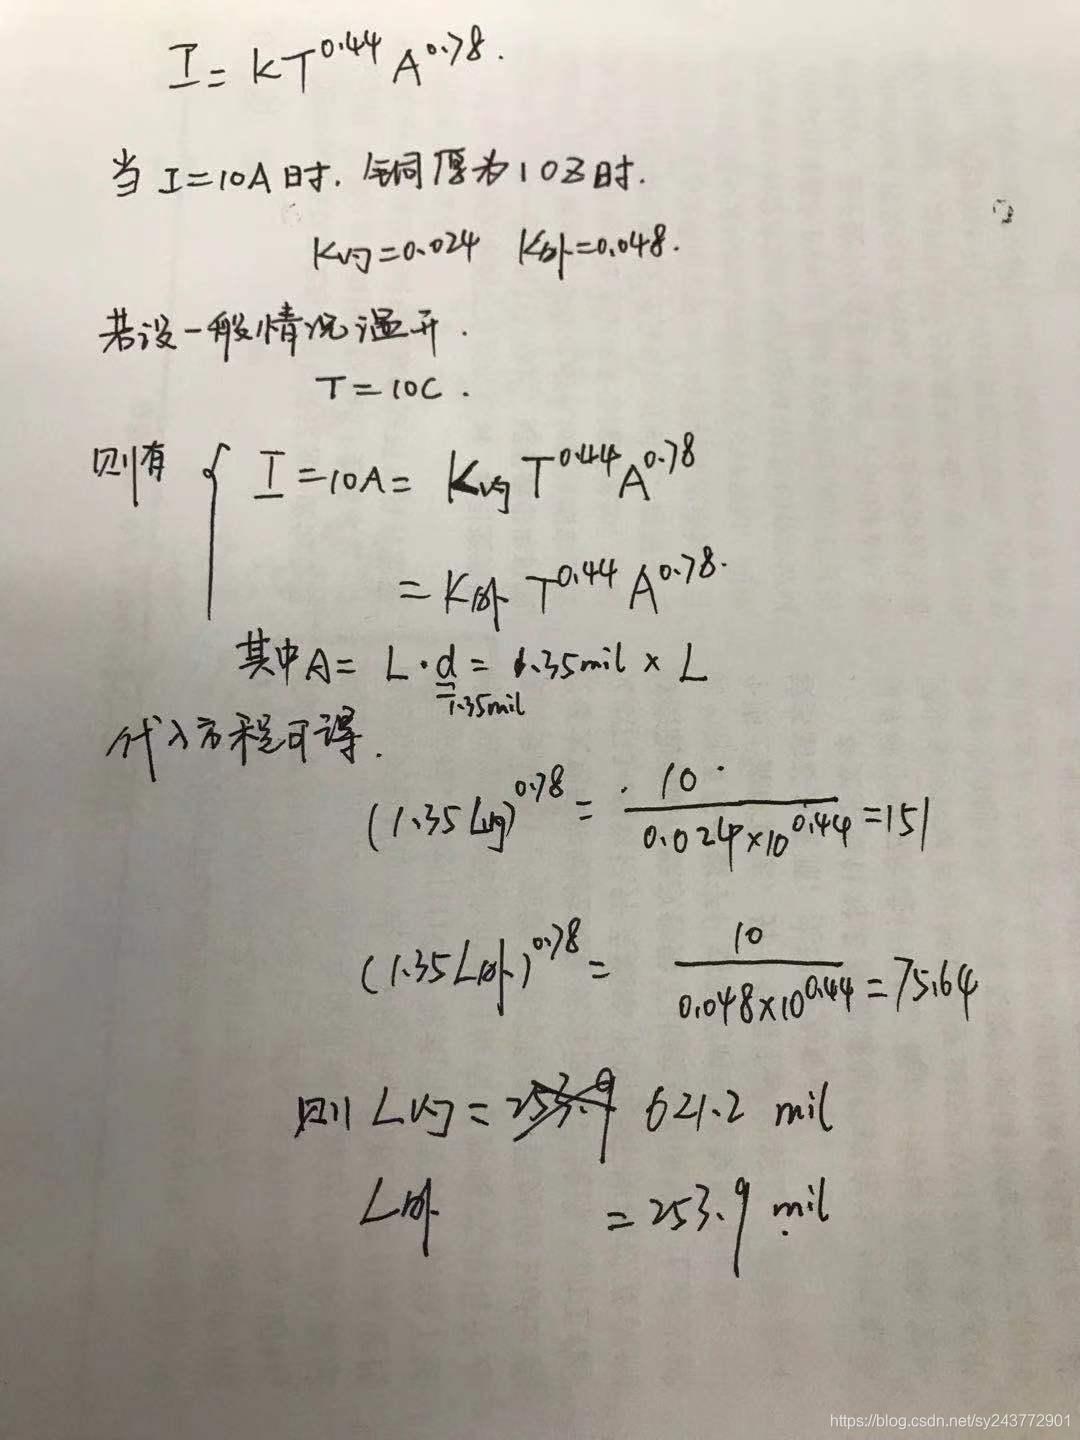 I = KT^0.44 A^0.78.
当 I=10A时. 铜厚为1OZ时.
K内=0.024 K外=0.048.
若设一般情况温升.
T=10C.
则有 { I=10A= K内 T^0.44 A^0.78
= K外 T^0.44 A^0.78.
其中A= L·d = 1.35mil × L
=1.35mil
代入方程可得.
(1.35L内)^0.78 = 10 / 0.024×10^0.44 =151
(1.35L外)^0.78 = 10 / 0.048×10^0.44 =75.64
则 L内= 621.2 mil
L外 =253.9 mil
https://blog.csdn.net/sy243772901